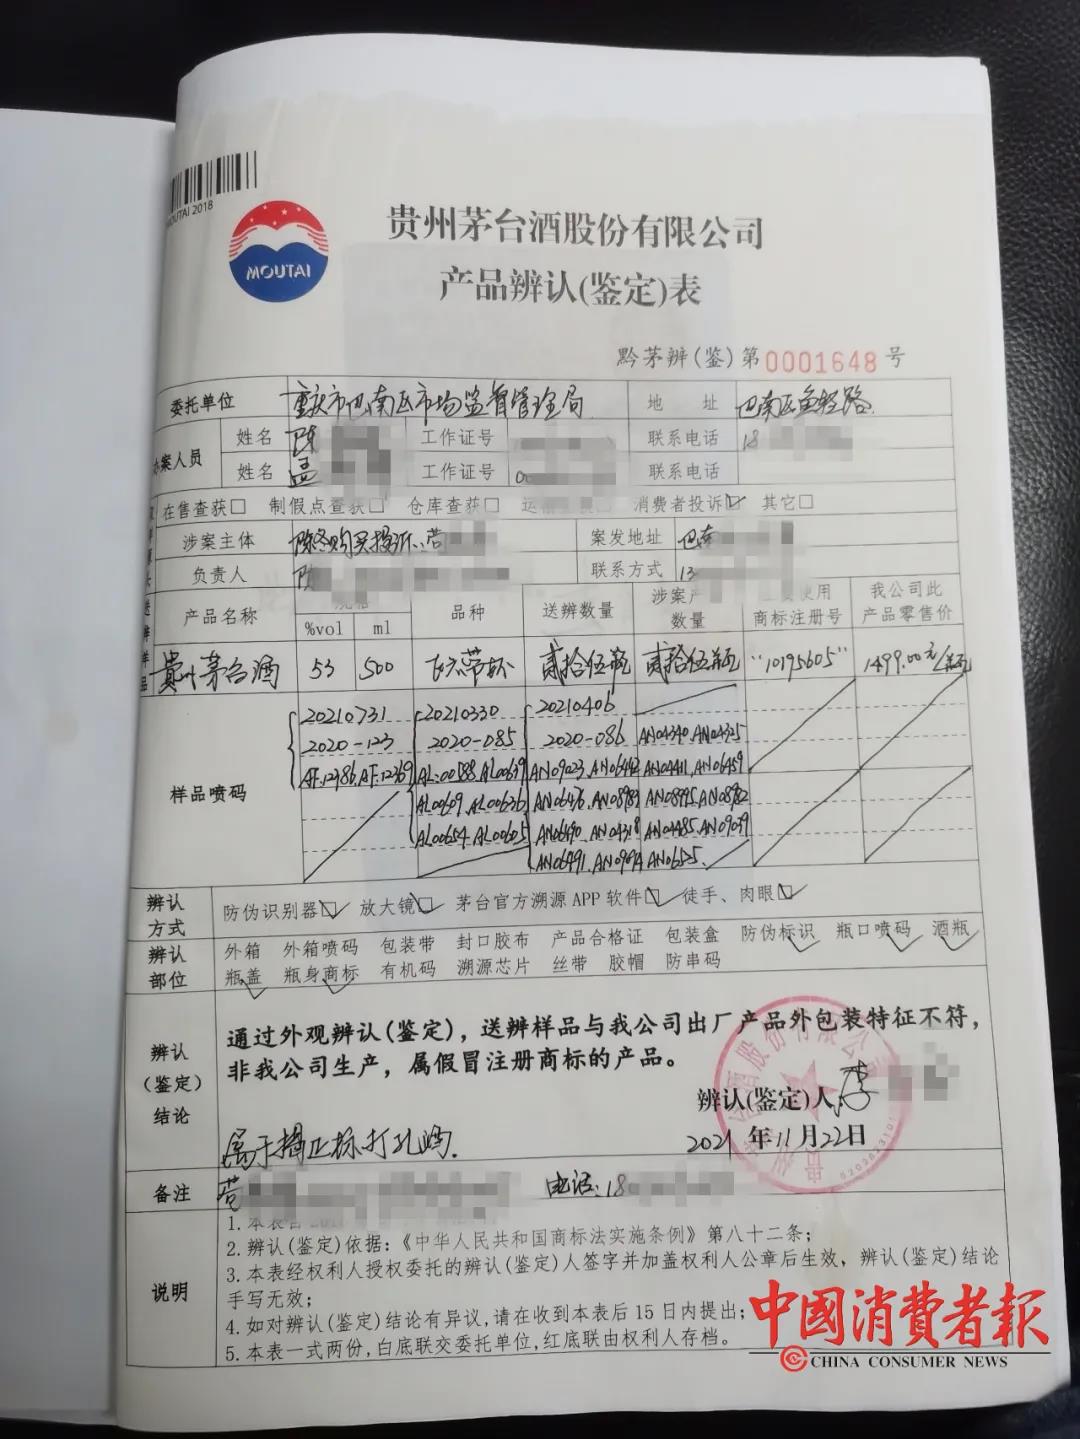 MOUTAI 2018
MOUTAI
贵州茅台酒股份有限公司
产品辨认(鉴定)表
黔茅辨(鉴)第0001648号
委托单位 重庆市巴南区市场监督管理局 地 址 巴南区鱼轻路
办案人员 姓名 陈 工作证号 联系电话 18
姓名 孟 工作证号 联系电话
在售查获□ 制假点查获□ 仓库查获□ 消费者投诉☑ 其它□
涉案主体 案发地址 巴南
负责人 联系方式 13
产品名称 %vol ml 品种 送辨数量 数量 使用商标注册号 我公司此产品零售价
贵州茅台酒 53 500 飞天带杯 贰拾伍瓶 贰拾伍瓶 "10195605" 1499.00元/瓶
样品喷码
20210731 20210330 20210406
2020-123 2020-085 2020-086 AN04340.AN04325
AF.12986.AF.12369 AL:00588.AL00639 AN09023.AN06442 AN04411.AN06459
AL00609.AL00636 AN06476.AN08983 AN08995.AN08982
AL00654.AL00605 AN06490.AN04318 AN04485.AN09039
AN06491.AN09094 AN06525.
辨认方式 防伪识别器☑ 放大镜☑ 茅台官方溯源APP软件☑ 徒手、肉眼☑
辨认部位 外箱 外箱喷码 包装带 封口胶布 产品合格证 包装盒 防伪标识 瓶口喷码 酒瓶
瓶盖 瓶身商标 有机码 溯源芯片 丝带 胶帽 防串码
辨认(鉴定)结论
通过外观辨认(鉴定)，送辨样品与我公司出厂产品外包装特征不符，
非我公司生产，属假冒注册商标的产品。
辨认(鉴定)人 李
2021年11月22日
属于揭正标打孔鸡.
备注 电话:18
说明
2.辨认(鉴定)依据:《中华人民共和国商标法实施条例》第八十二条;
3.本表经权利人授权委托的辨认(鉴定)人签字并加盖权利人公章后生效，辨认(鉴定)结论
手写无效;
4.如对辨认(鉴定)结论有异议,请在收到本表后15日内提出;
5.本表一式两份,白底联交委托单位,红底联由权利人存档。
中國消費者報
CHINA CONSUMER NEWS